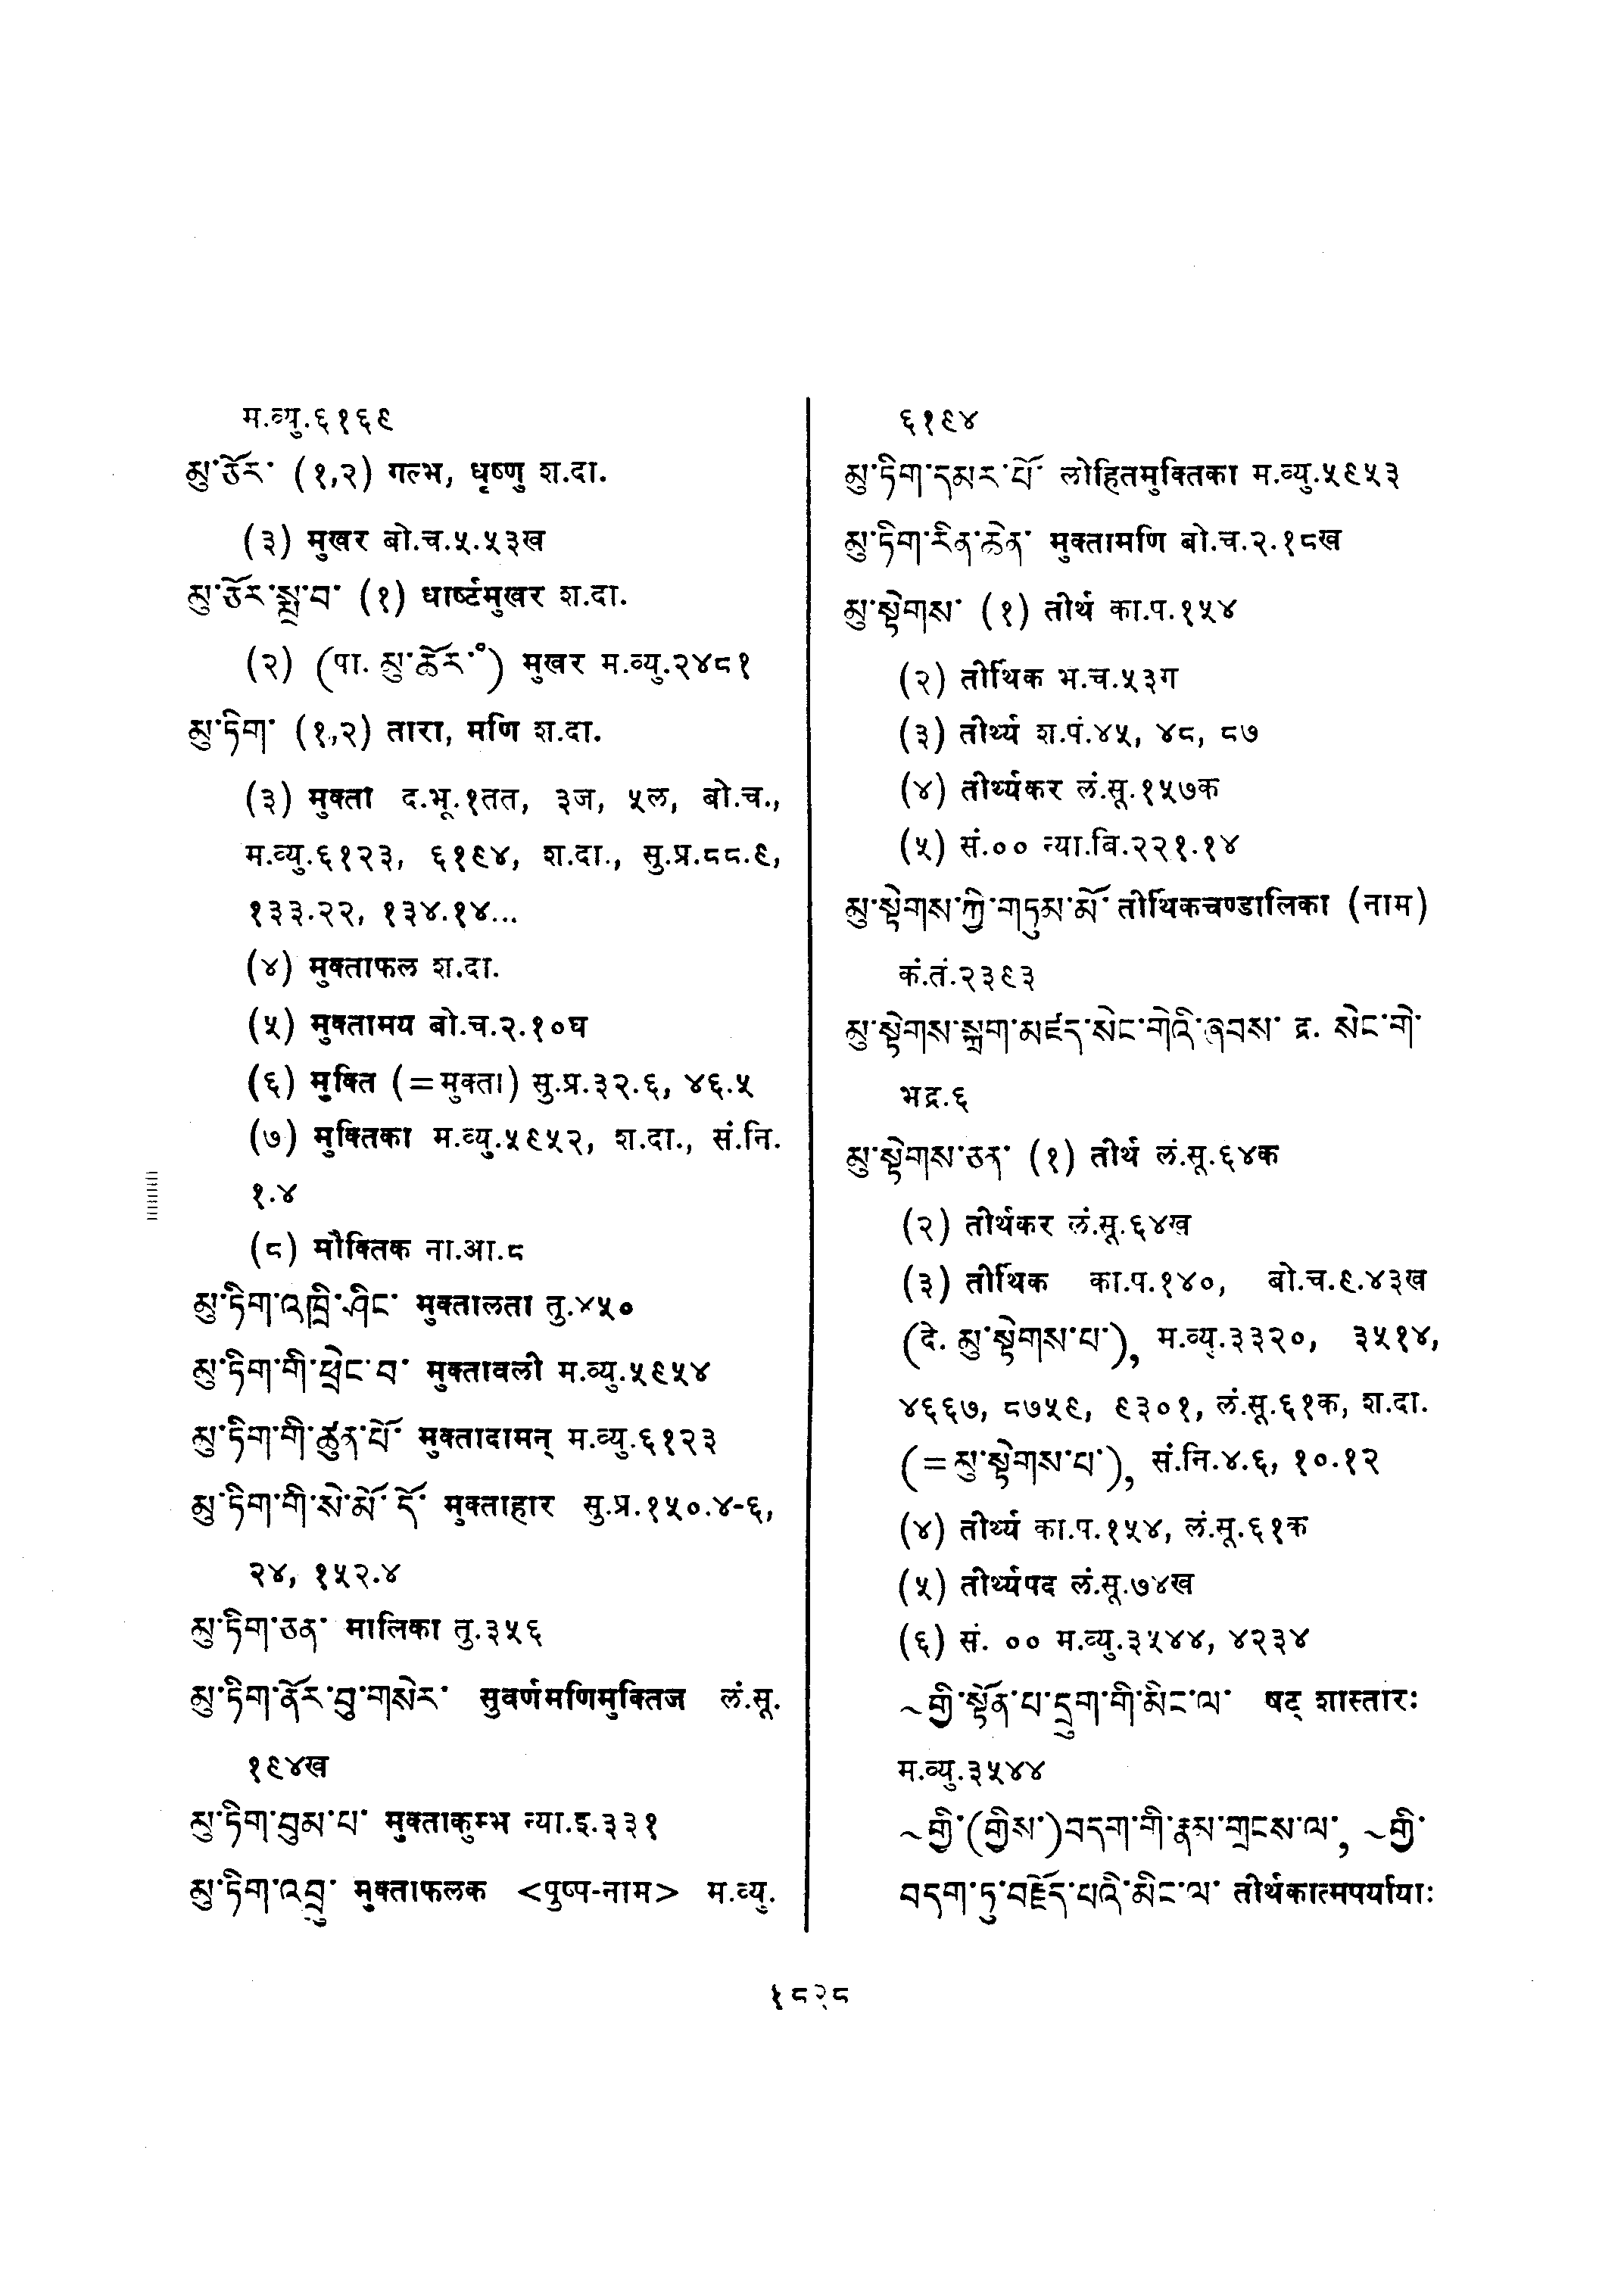 म.व्यु.६१६९
མུ་ཅོར་ (१,२) गल्भ, धृष्णु श.दा.
(३) मुखर बो.च.५.५३ख
མུ་ཅོར་སྨྲ་བ་ (१) धार्ष्टमुखर श.दा.
(२) (पा. མུ་ཆོར་°) मुखर म.व्यु.२४८१
མུ་ཏིག་ (१,२) तारा, मणि श.दा.
(३) मुक्ता द.भू.१तत, ३ज, ५ल, बो.च.,
म.व्यु.६१२३, ६१९४, श.दा., सु.प्र.८८.९,
१३३.२२, १३४.१४...
(४) मुक्ताफल श.दा.
(५) मुक्तामय बो.च.२.१०घ
(६) मुक्ति (=मुक्ता) सु.प्र.३२.६, ४६.५
(७) मुक्तिका म.व्यु.५९५२, श.दा., सं.नि.
१.४
(८) मौक्तिक ना.आ.८
མུ་ཏིག་འཁྲི་ཤིང་ मुक्तालता तु.४५०
མུ་ཏིག་གི་ཕྲེང་བ་ मुक्तावली म.व्यु.५९५४
མུ་ཏིག་གི་ཚུན་པོ་ मुक्तादामन् म.व्यु.६१२३
མུ་ཏིག་གི་སེ་མོ་དོ་ मुक्ताहार सु.प्र.१५०.४-६,
२४, १५२.४
མུ་ཏིག་ཅན་ मालिका तु.३५६
མུ་ཏིག་ནོར་བུ་གསེར་ सुवर्णमणिमुक्तिज लं.सू.
१९४ख
མུ་ཏིག་བུམ་པ་ मुक्ताकुम्भ न्या.इ.३३१
མུ་ཏིག་འབྲུ་ मुक्ताफलक <पुष्प-नाम> म.व्यु.
६१९४
མུ་ཏིག་དམར་པོ་ लोहितमुक्तिका म.व्यु.५९५३
མུ་ཏིག་རིན་ཆེན་ मुक्तामणि बो.च.२.१८ख
མུ་སྟེགས་ (१) तीर्थ का.प.१५४
(२) तीर्थिक भ.च.५३ग
(३) तीर्थ्य श.पं.४५, ४८, ८७
(४) तीर्थ्यकर लं.सू.१५७क
(५) सं.०० न्या.बि.२२१.१४
མུ་སྟེགས་ཀྱི་གཏུམ་མོ་ तीर्थिकचण्डालिका (नाम)
कं.तं.२३९३
མུ་སྟེགས་སྐྲག་མཛད་སེང་གེའི་ཞབས་ द्र. སེང་གེ་
भद्र.६
མུ་སྟེགས་ཅན་ (१) तीर्थ लं.सू.६४क
(२) तीर्थकर लं.सू.६४ख
(३) तीर्थिक का.प.१४०, बो.च.९.४३ख
(दे. མུ་སྟེགས་པ་), म.व्यु.३३२०, ३५१४,
४६६७, ८७५९, ९३०१, लं.सू.६१क, श.दा.
(=མུ་སྟེགས་པ་), सं.नि.४.६, १०.१२
(४) तीर्थ्य का.प.१५४, लं.सू.६१क
(५) तीर्थ्यपद लं.सू.७४ख
(६) सं. ०० म.व्यु.३५४४, ४२३४
~གྱི་སྟོན་པ་དྲུག་གི་མིང་ལ་ षट् शास्तारः
म.व्यु.३५४४
~གྱི་(གྱིས་)བདག་གི་རྣམ་གྲངས་ལ་, ~གྱི་
བདག་ཏུ་བརྗོད་པའི་མིང་ལ་ तीर्थकात्मपर्यायाः
१८२८